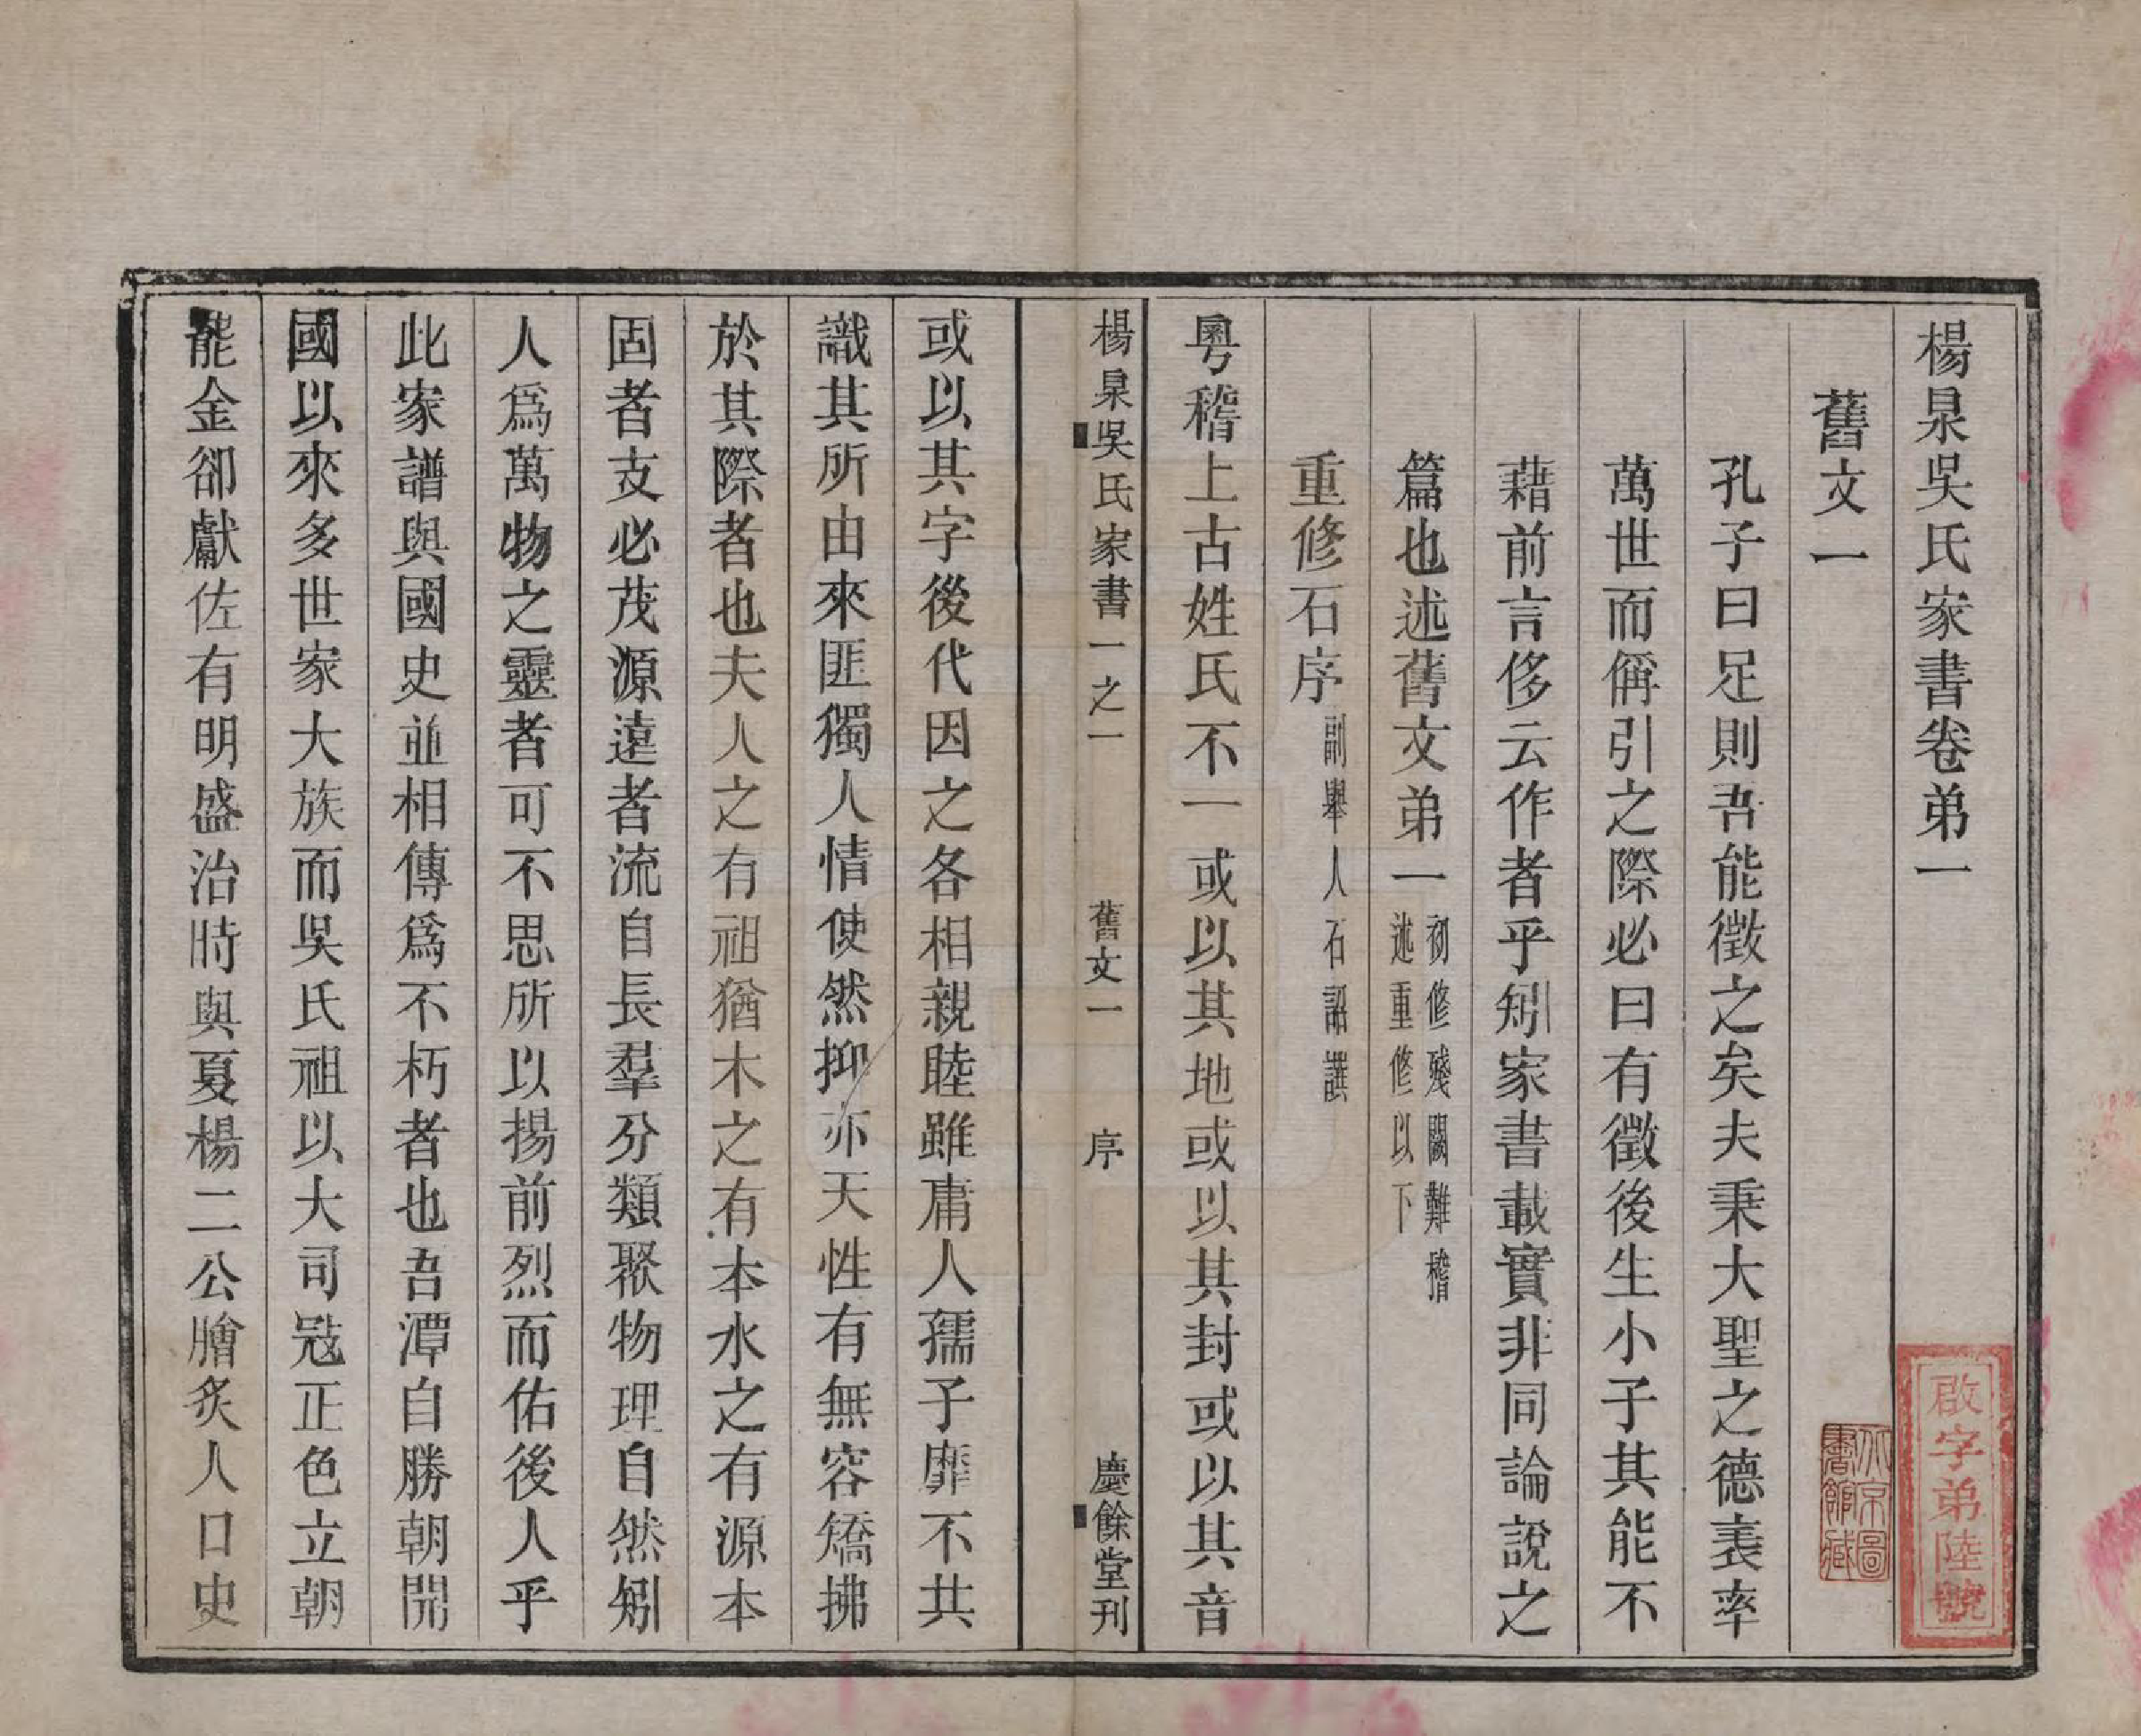 楊泉吳氏家書卷弟一
舊文一
孔子曰足則吾能徵之矣夫秉大聖之德表率
萬世而偁引之際必曰有徵後生小子其能不
藉前言侈云作者乎矧家書載實非同論說之
篇也述舊文弟一初修殘闕難稽述重修以下
重修石序副舉人石韶譔
粵稽上古姓氏不一或以其地或以其封或以其音
楊泉吳氏家書一之一 舊文一 序 慶餘堂刊
或以其字後代因之各相親睦雖庸人孺子靡不共
識其所由來匪獨人情使然抑亦天性有無容矯拂
於其際者也夫人之有祖猶木之有本水之有源本
固者支必茂源遠者流自長羣分類聚物理自然矧
人爲萬物之靈者可不思所以揚前烈而佑後人乎
此家譜與國史並相傳爲不朽者也吾潭自勝朝開
國以來多世家大族而吳氏祖以大司冦正色立朝
能金卻獻佐有明盛治時與夏楊二公膾炙人口史
啟字弟陸號
北京圖書館藏